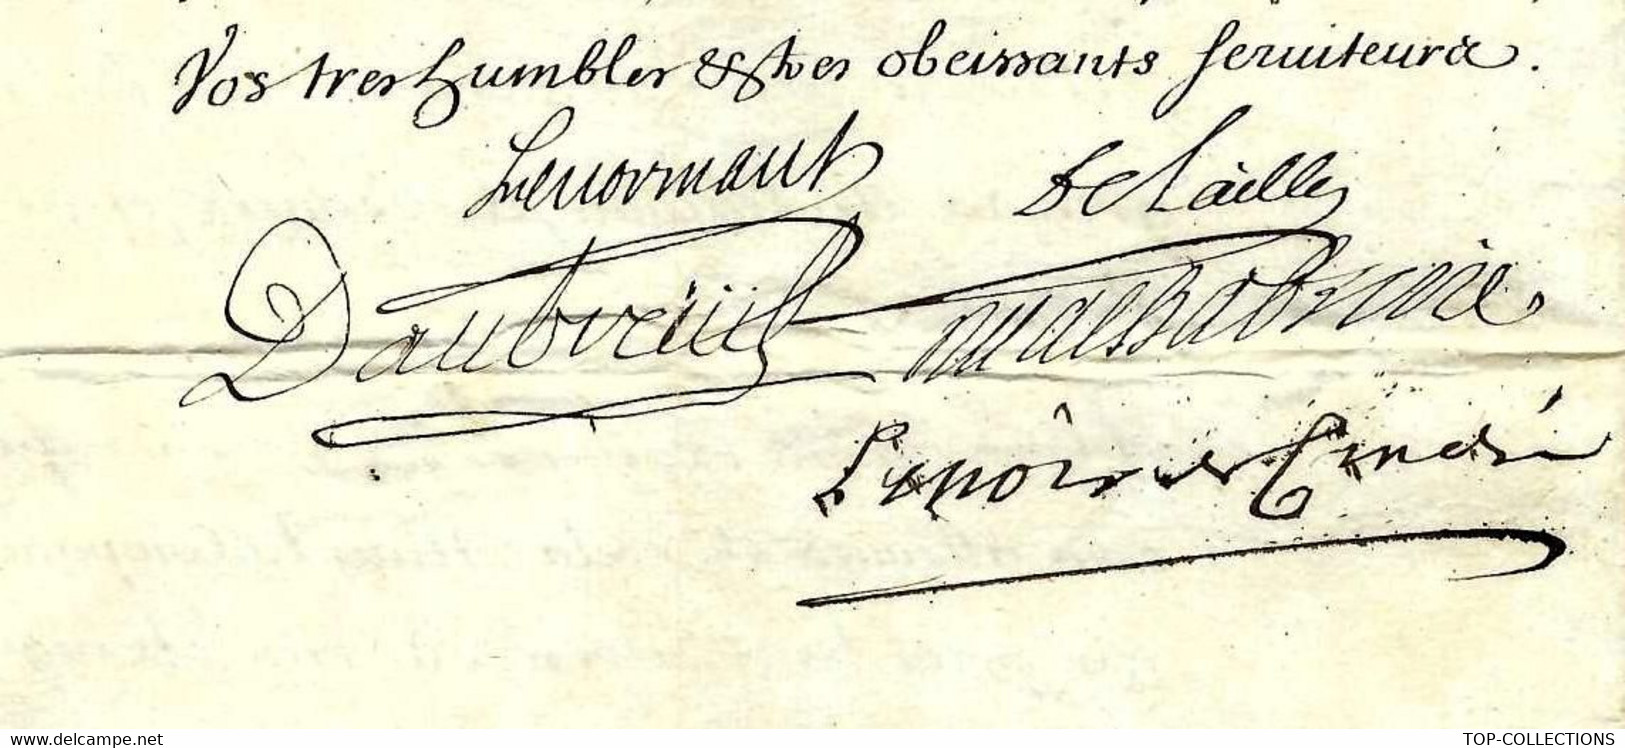 Vos tres humbles & tres obeissants seruiteurs.
Lenormant De Lailly
Daubreüil
Lenoir de
www.delcampe.net TOP-COLLECTIONS